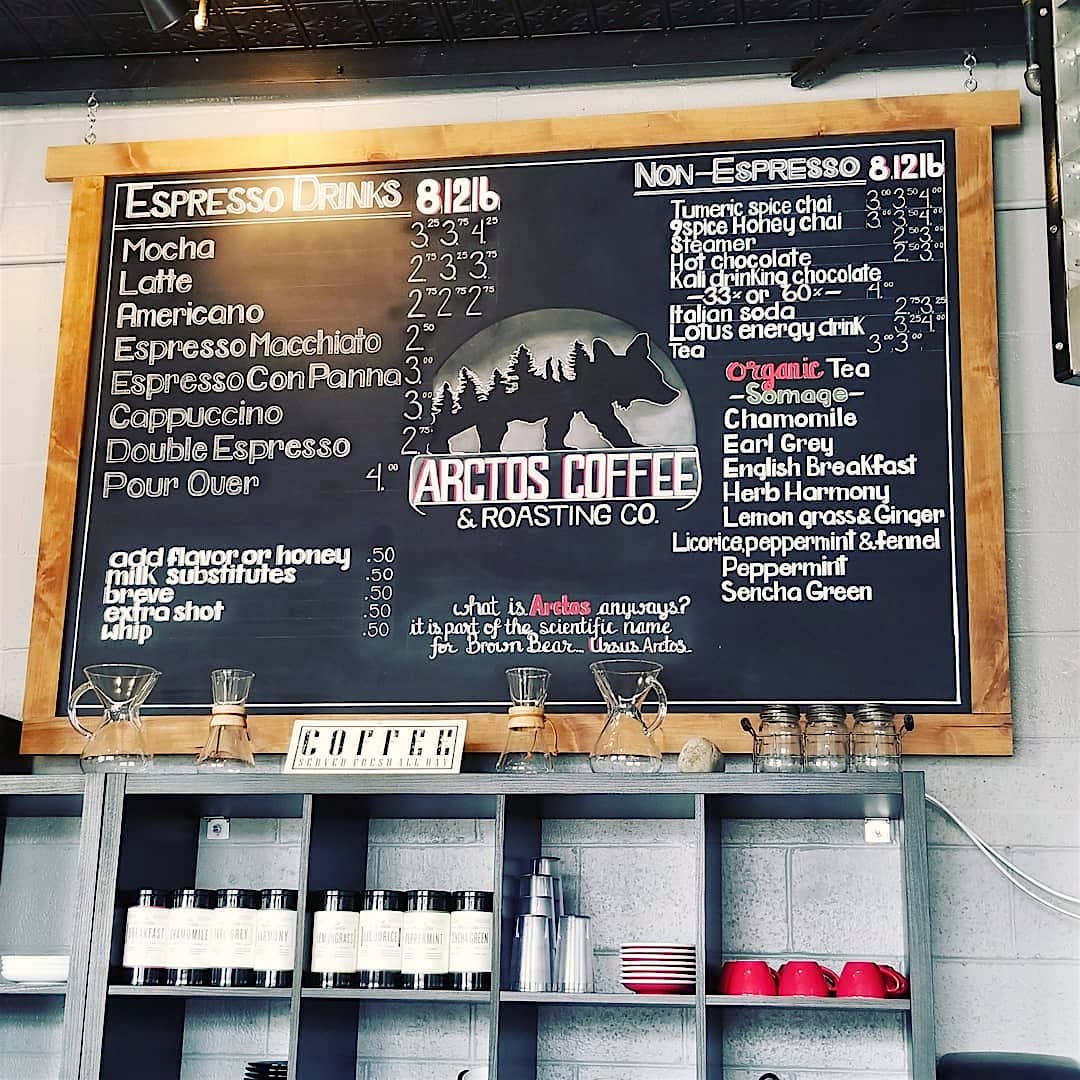 ESPRESSO DRINKS 8 12 16
Mocha 3.25 3.75 4.25
Latte 2.75 3.25 3.75
Americano 2.75 2.75 2.75
Espresso Macchiato 2.50
Espresso Con Panna 3.00
Cappuccino 3.00
Double Espresso 2.75
Pour Over 4.00
add flavor or honey .50
milk substitutes .50
breve .50
extra shot .50
whip .50
ARCTOS COFFEE
& ROASTING CO.
what is Arctos anyways?
it is part of the scientific name
for Brown Bear... Ursus Arctos..
NON-ESPRESSO 8 12 16
Tumeric spice chai 3.00 3.50 4.00
9spice Honey chai 3.00 3.50 4.00
Steamer 2.50 3.00
Hot chocolate 2.50 3.00
Kali drinking chocolate
-33% or 60%- 4.00
Italian soda 2.75 3.25
Lotus energy drink 3.25 4.00
Tea 3.00 3.00
organic Tea
-Somage-
Chamomile
Earl Grey
English Breakfast
Herb Harmony
Lemon grass & Ginger
Licorice, peppermint & fennel
Peppermint
Sencha Green
COFFEE
SERVED FRESH ALL DAY
BREAKFAST
CHAMOMILE
EARL GREY
HARMONY
LEMONGRASS
LICORICE
PEPPERMINT
SENCHA GREEN